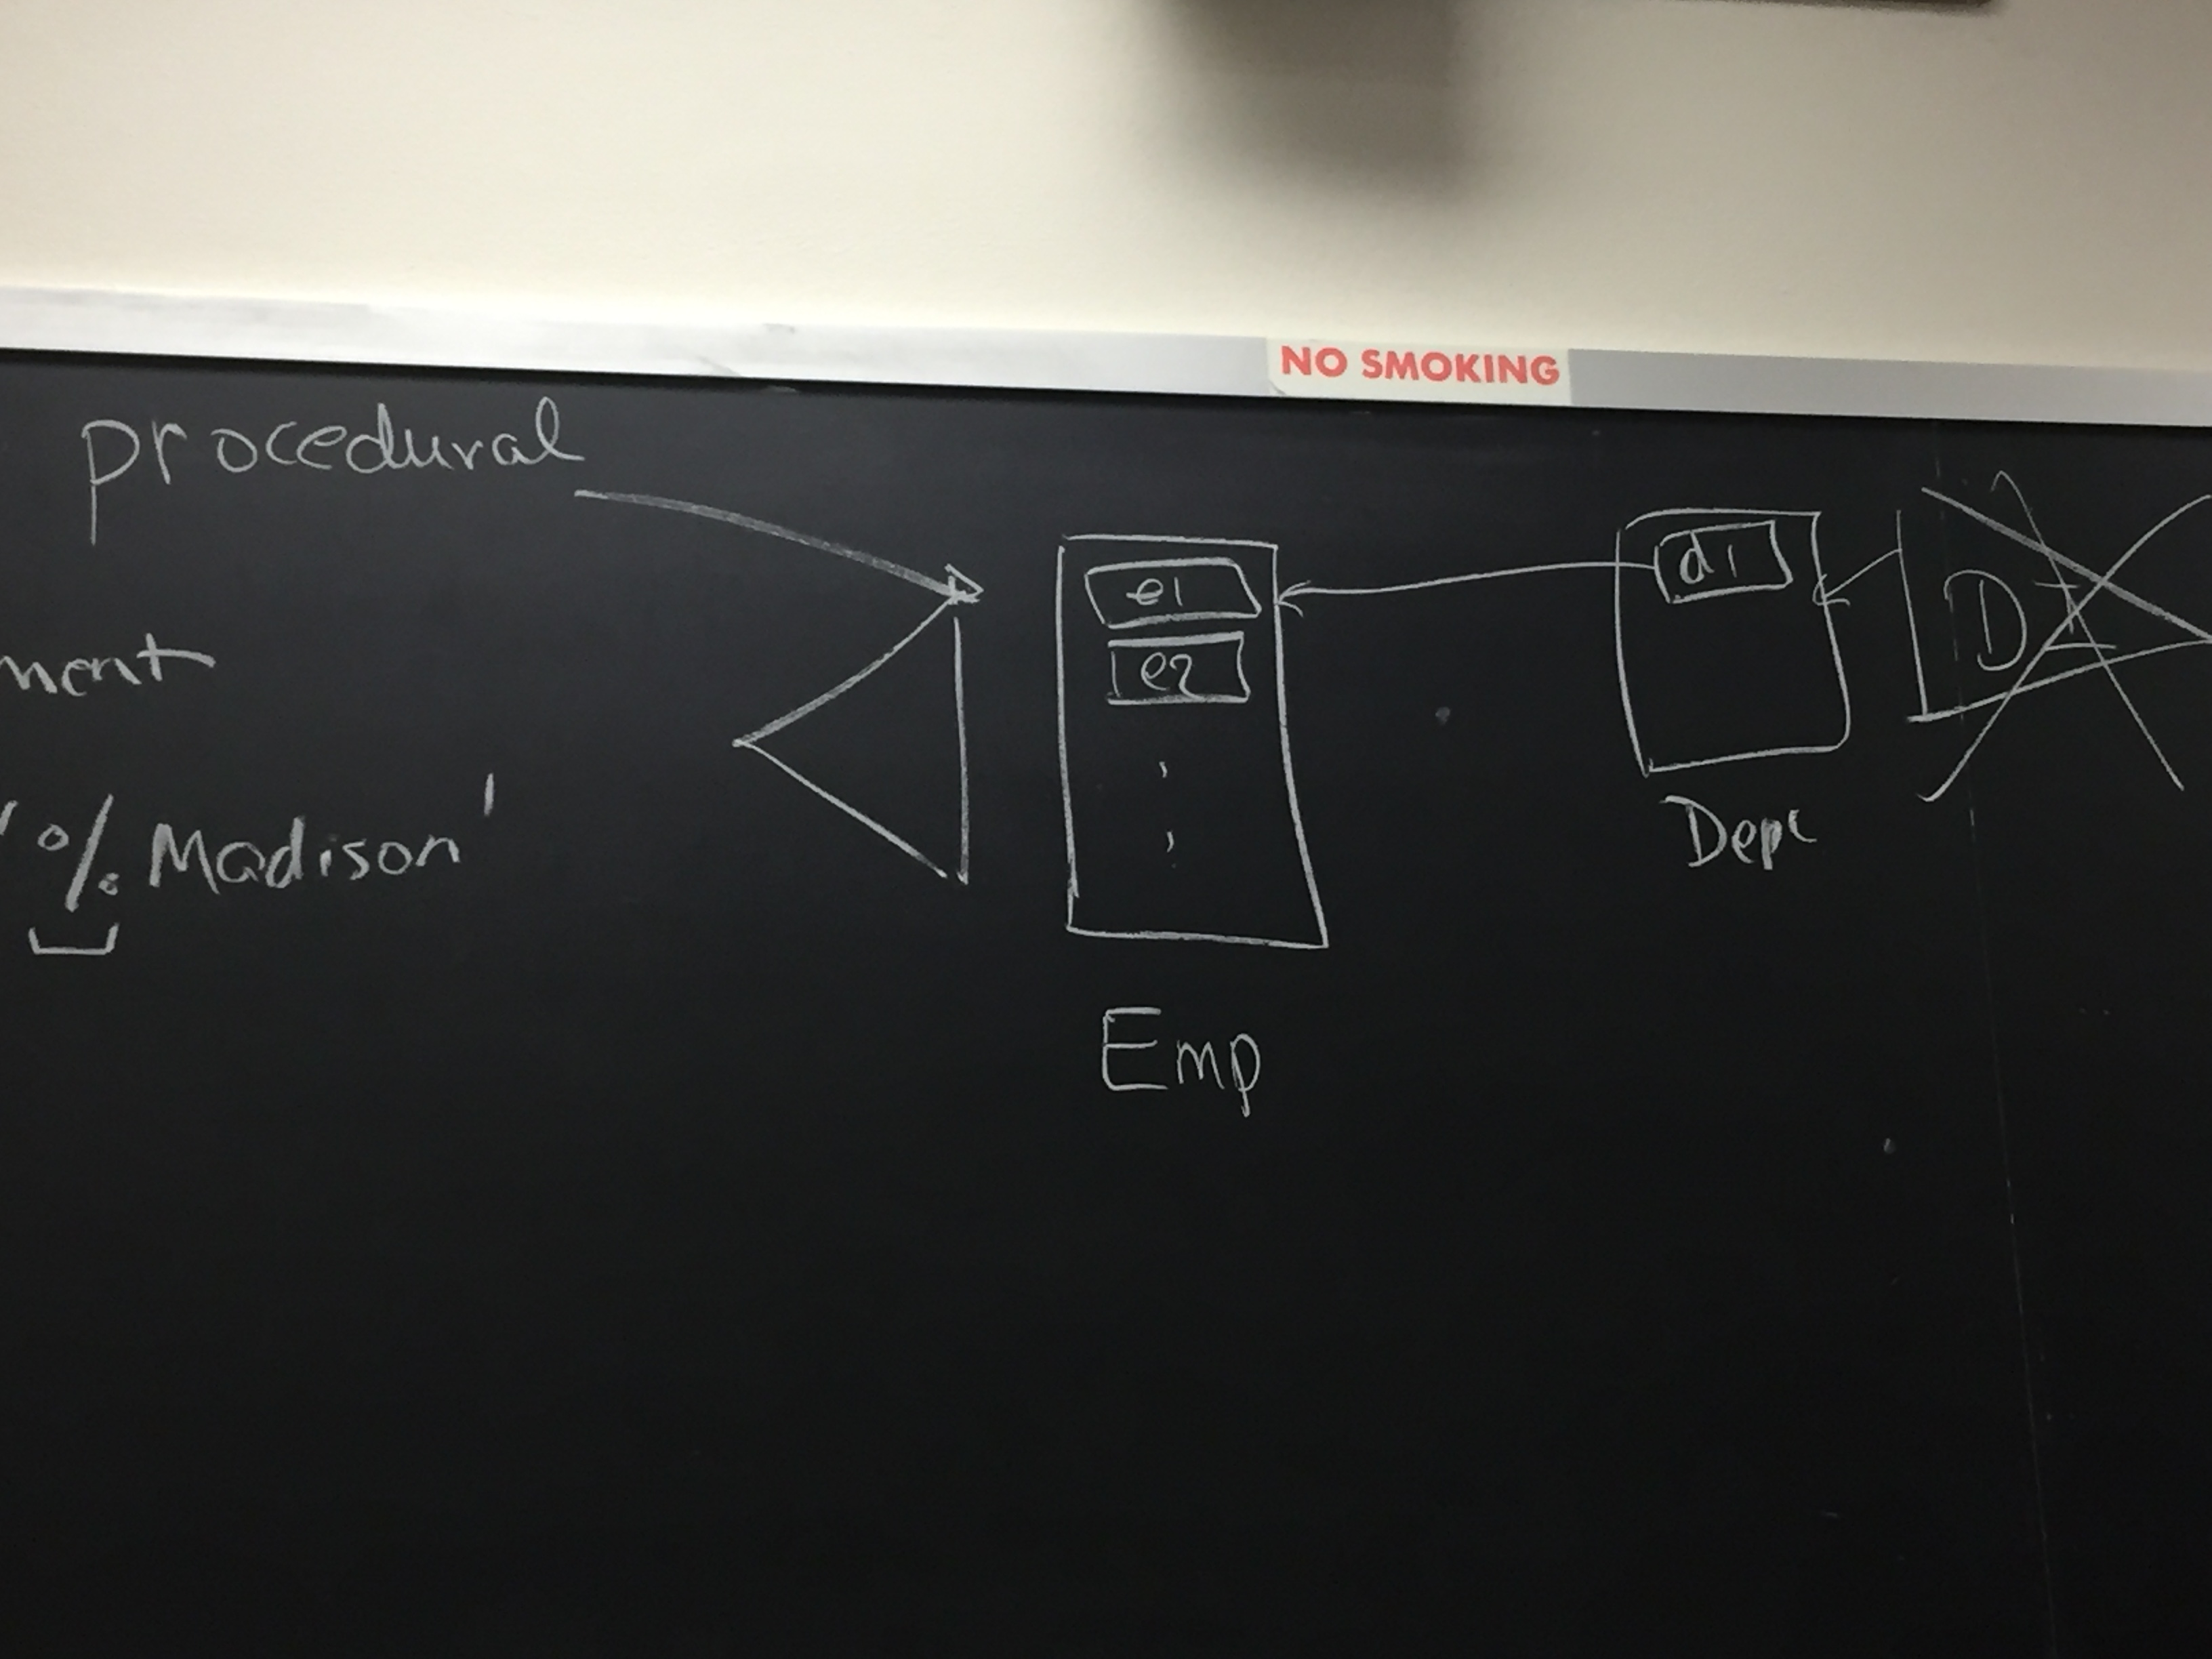 NO SMOKING
procedural
ment
'%Madison'
e1
e2
Emp
d1
Dept
D